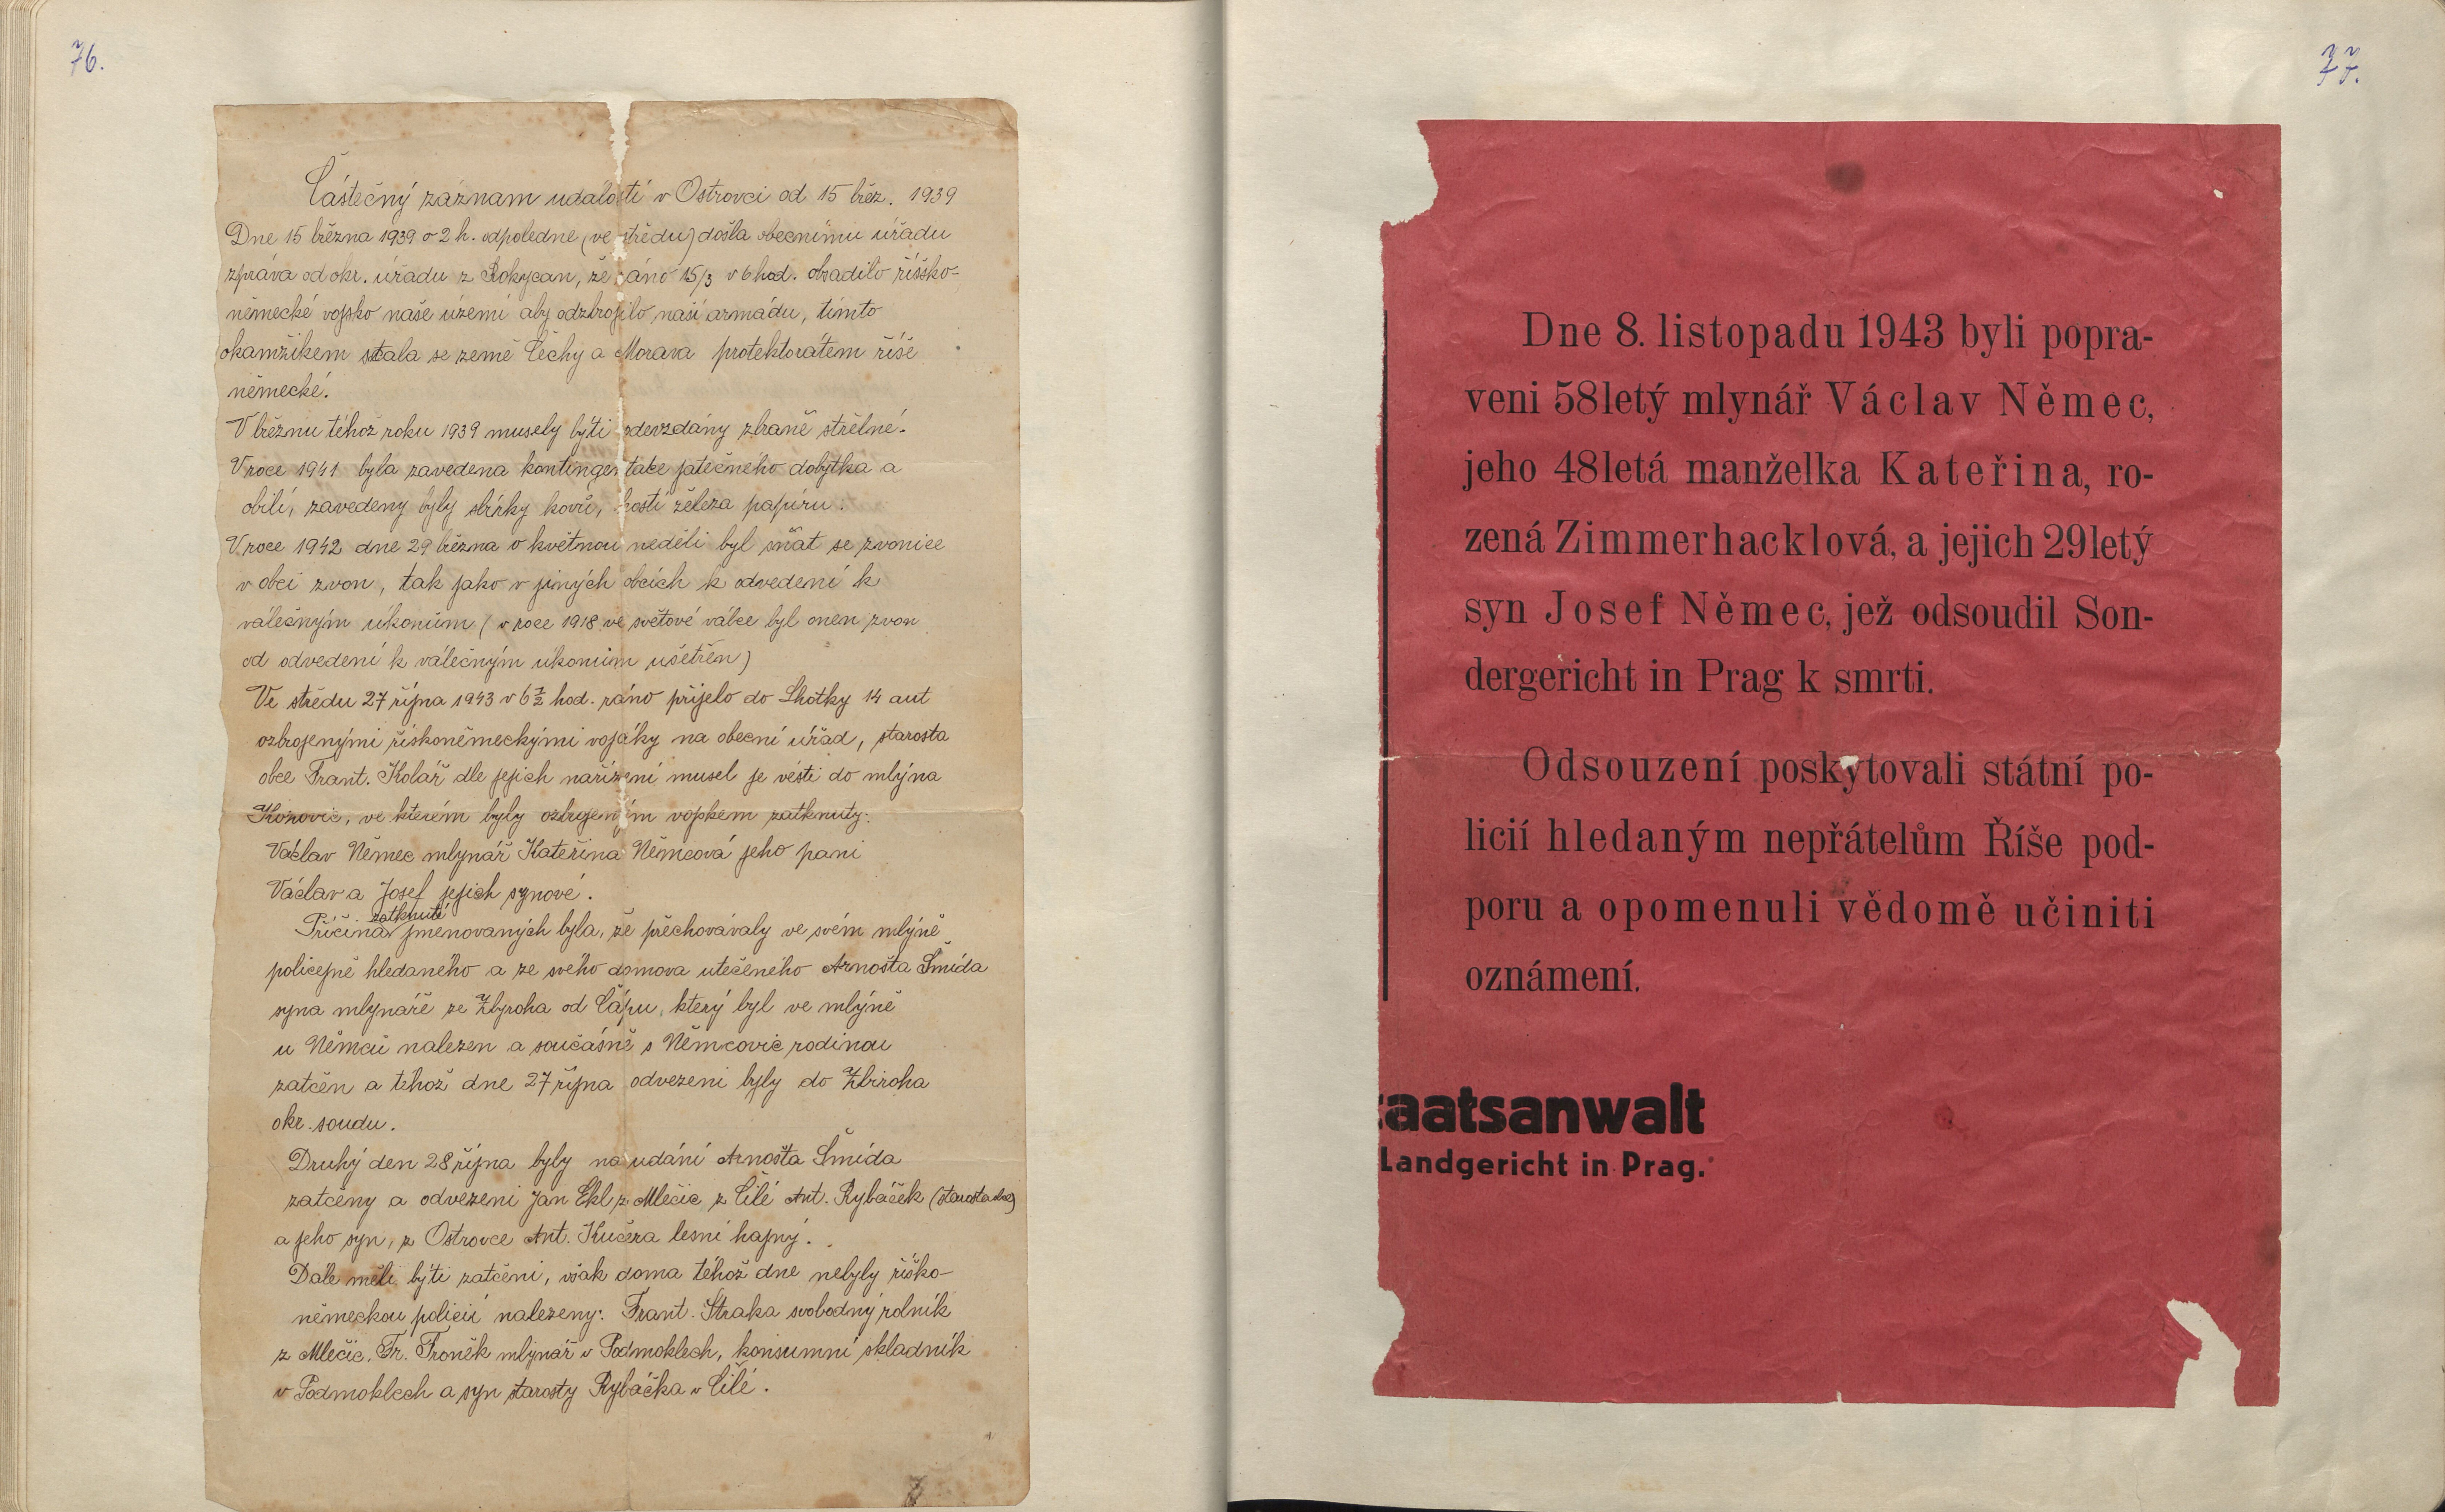 76.
Částečný záznam událostí v Ostrovci od 15 břez. 1939
Dne 15 března 1939 o 2 h. odpoledne (ve středu) došla obecnímu úřadu
zpráva od okr. úřadu z Rokycan, že ráno 15/3 v 6 hod. obsadilo říšsko-
německé vojsko naše území aby odzbrojilo naší armádu, tímto
okamžikem stala se země Čechy a Morava protektorátem říše
německé.
V březnu téhož roku 1939 musely býti odevzdány zbraně střelné.
V roce 1941 byla zavedena kontingentace jatečného dobytka a
obilí, zavedeny byly sbírky kovů, kostí železa papíru.
V roce 1942 dne 29 března o květnou neděli byl sňat se zvonice
v obci zvon, tak jako v jiných obcích k odvedení k
válečným úkonům (v roce 1918 ve světové válce byl onen zvon
od odvedení k válečným úkonům ušetřen)
Ve středu 27 října 1943 v 6½ hod. ráno přijelo do Lhotky 14 aut
ozbrojenými řískoněmeckými vojáky na obecní úřad, starosta
obce Frant. Kolář dle jejich nařízení musel je vésti do mlýna
ve kterém byly ozbrojeným vojskem zatknuty:
Václav Němec mlynář Kateřina Němcová jeho paní
Václav a Josef jejich synové.
Příčina zatknutí jmenovaných byla, že přechovávaly ve svém mlýně
policejně hledaného a ze svého domova utečeného Arnošta Šmída
syna mlynáře ze Zbyroha od Čápu, který byl ve mlýně
u Němců nalezen a současně s Němcovic rodinou
zatčen a téhož dne 27 října odvezeni byly do Zbiroha
okr. soudu.
Druhý den 28 října byly na udání Arnošta Šmída
zatčeny a odvezeni Jan Ekl z Mlečic, z Čilé Ant. Rybáček (starosta obce)
a jeho syn, z Ostrovce Ant. Kučera lesní hajný.
Dále měli býti zatčeni, však doma téhož dne nebyly říško-
německou policií nalezeny: Frant. Straka svobodný rolník
z Mlečic, Fr. Froněk mlynář v Podmoklech, konsumní skladník
v Podmoklech a syn starosty Rybáčka v Čilé.
77.
Dne 8. listopadu 1943 byli popra-
veni 58letý mlynář Václav Němec,
jeho 48letá manželka Kateřina, ro-
zená Zimmerhacklová, a jejich 29letý
syn Josef Němec, jež odsoudil Son-
dergericht in Prag k smrti.
Odsouzení poskytovali státní po-
licií hledaným nepřátelům Říše pod-
poru a opomenuli vědomě učiniti
oznámení.
taatsanwalt
Landgericht in Prag.